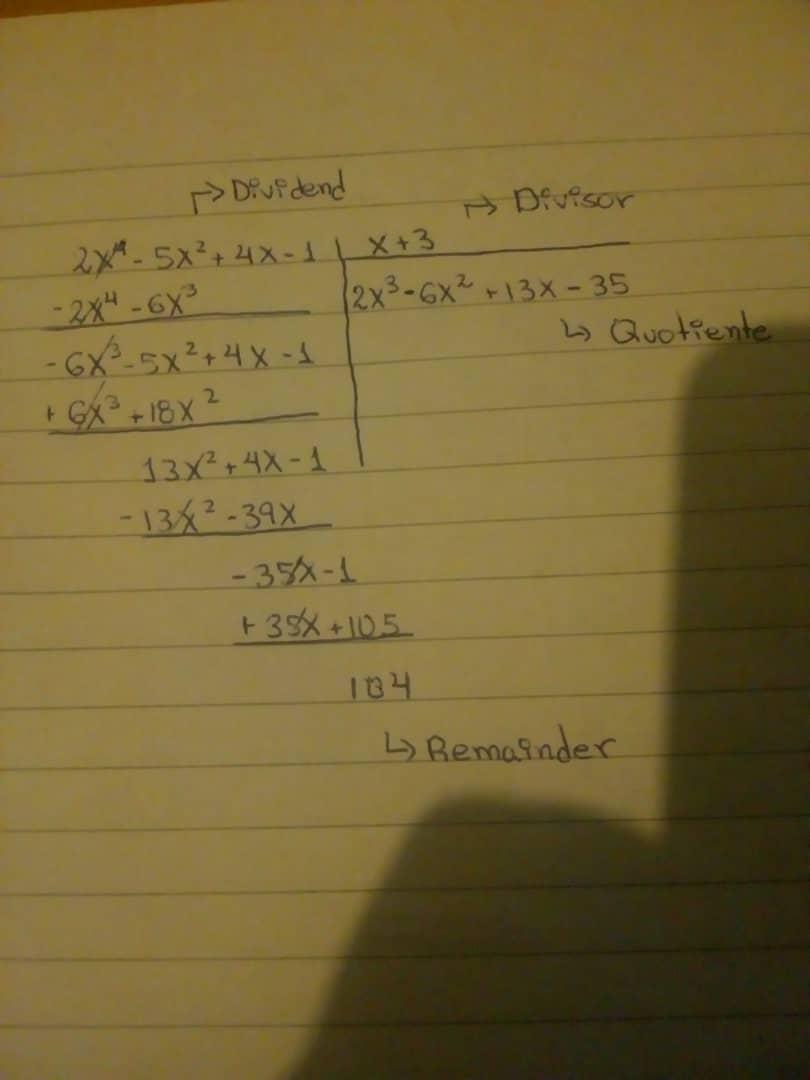 ↱> Dividend
↱> Divisor
2x⁴ - 5x² + 4x - 1 | x + 3
- 2x⁴ - 6x³
2x³ - 6x² + 13x - 35
↳ Quotiente
- 6x³ - 5x² + 4x - 1
+ 6x³ + 18x²
13x² + 4x - 1
- 13x² - 39x
- 35x - 1
+ 35x + 105
104
↳ Remainder